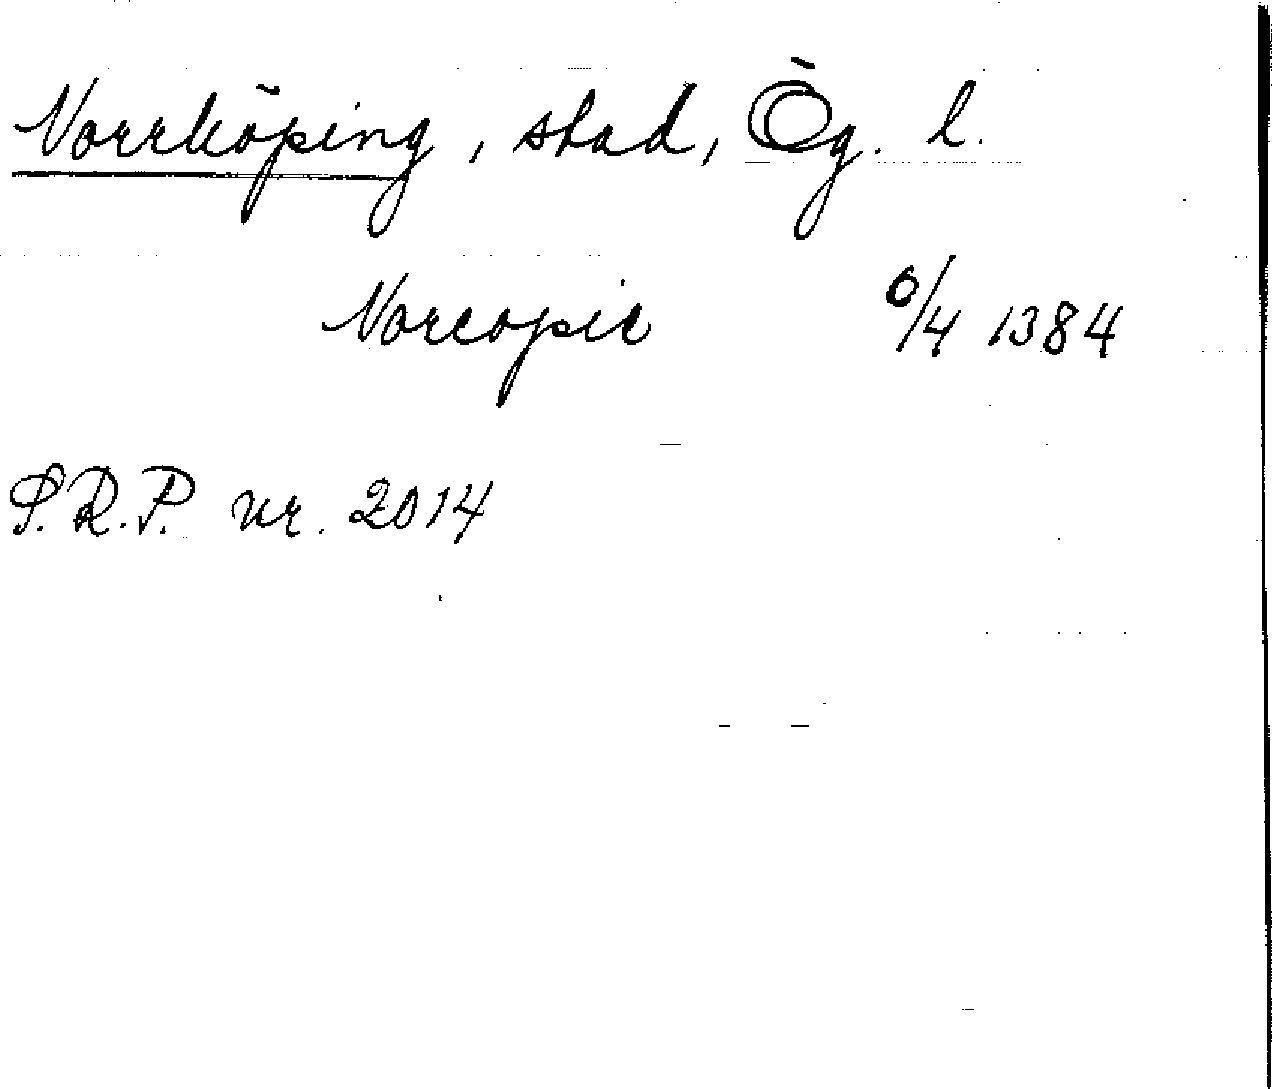 Norrköping, stad, Ög. l.
Norcopie 6/4 1384
S.R.P. nr. 2014